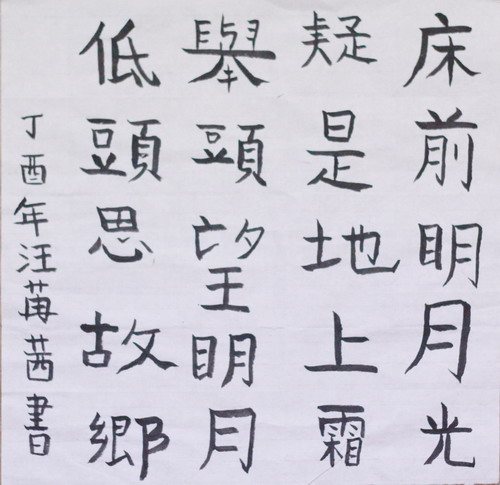 床前明月光
疑是地上霜
舉頭望明月
低頭思故鄉
丁酉年汪苒茜書